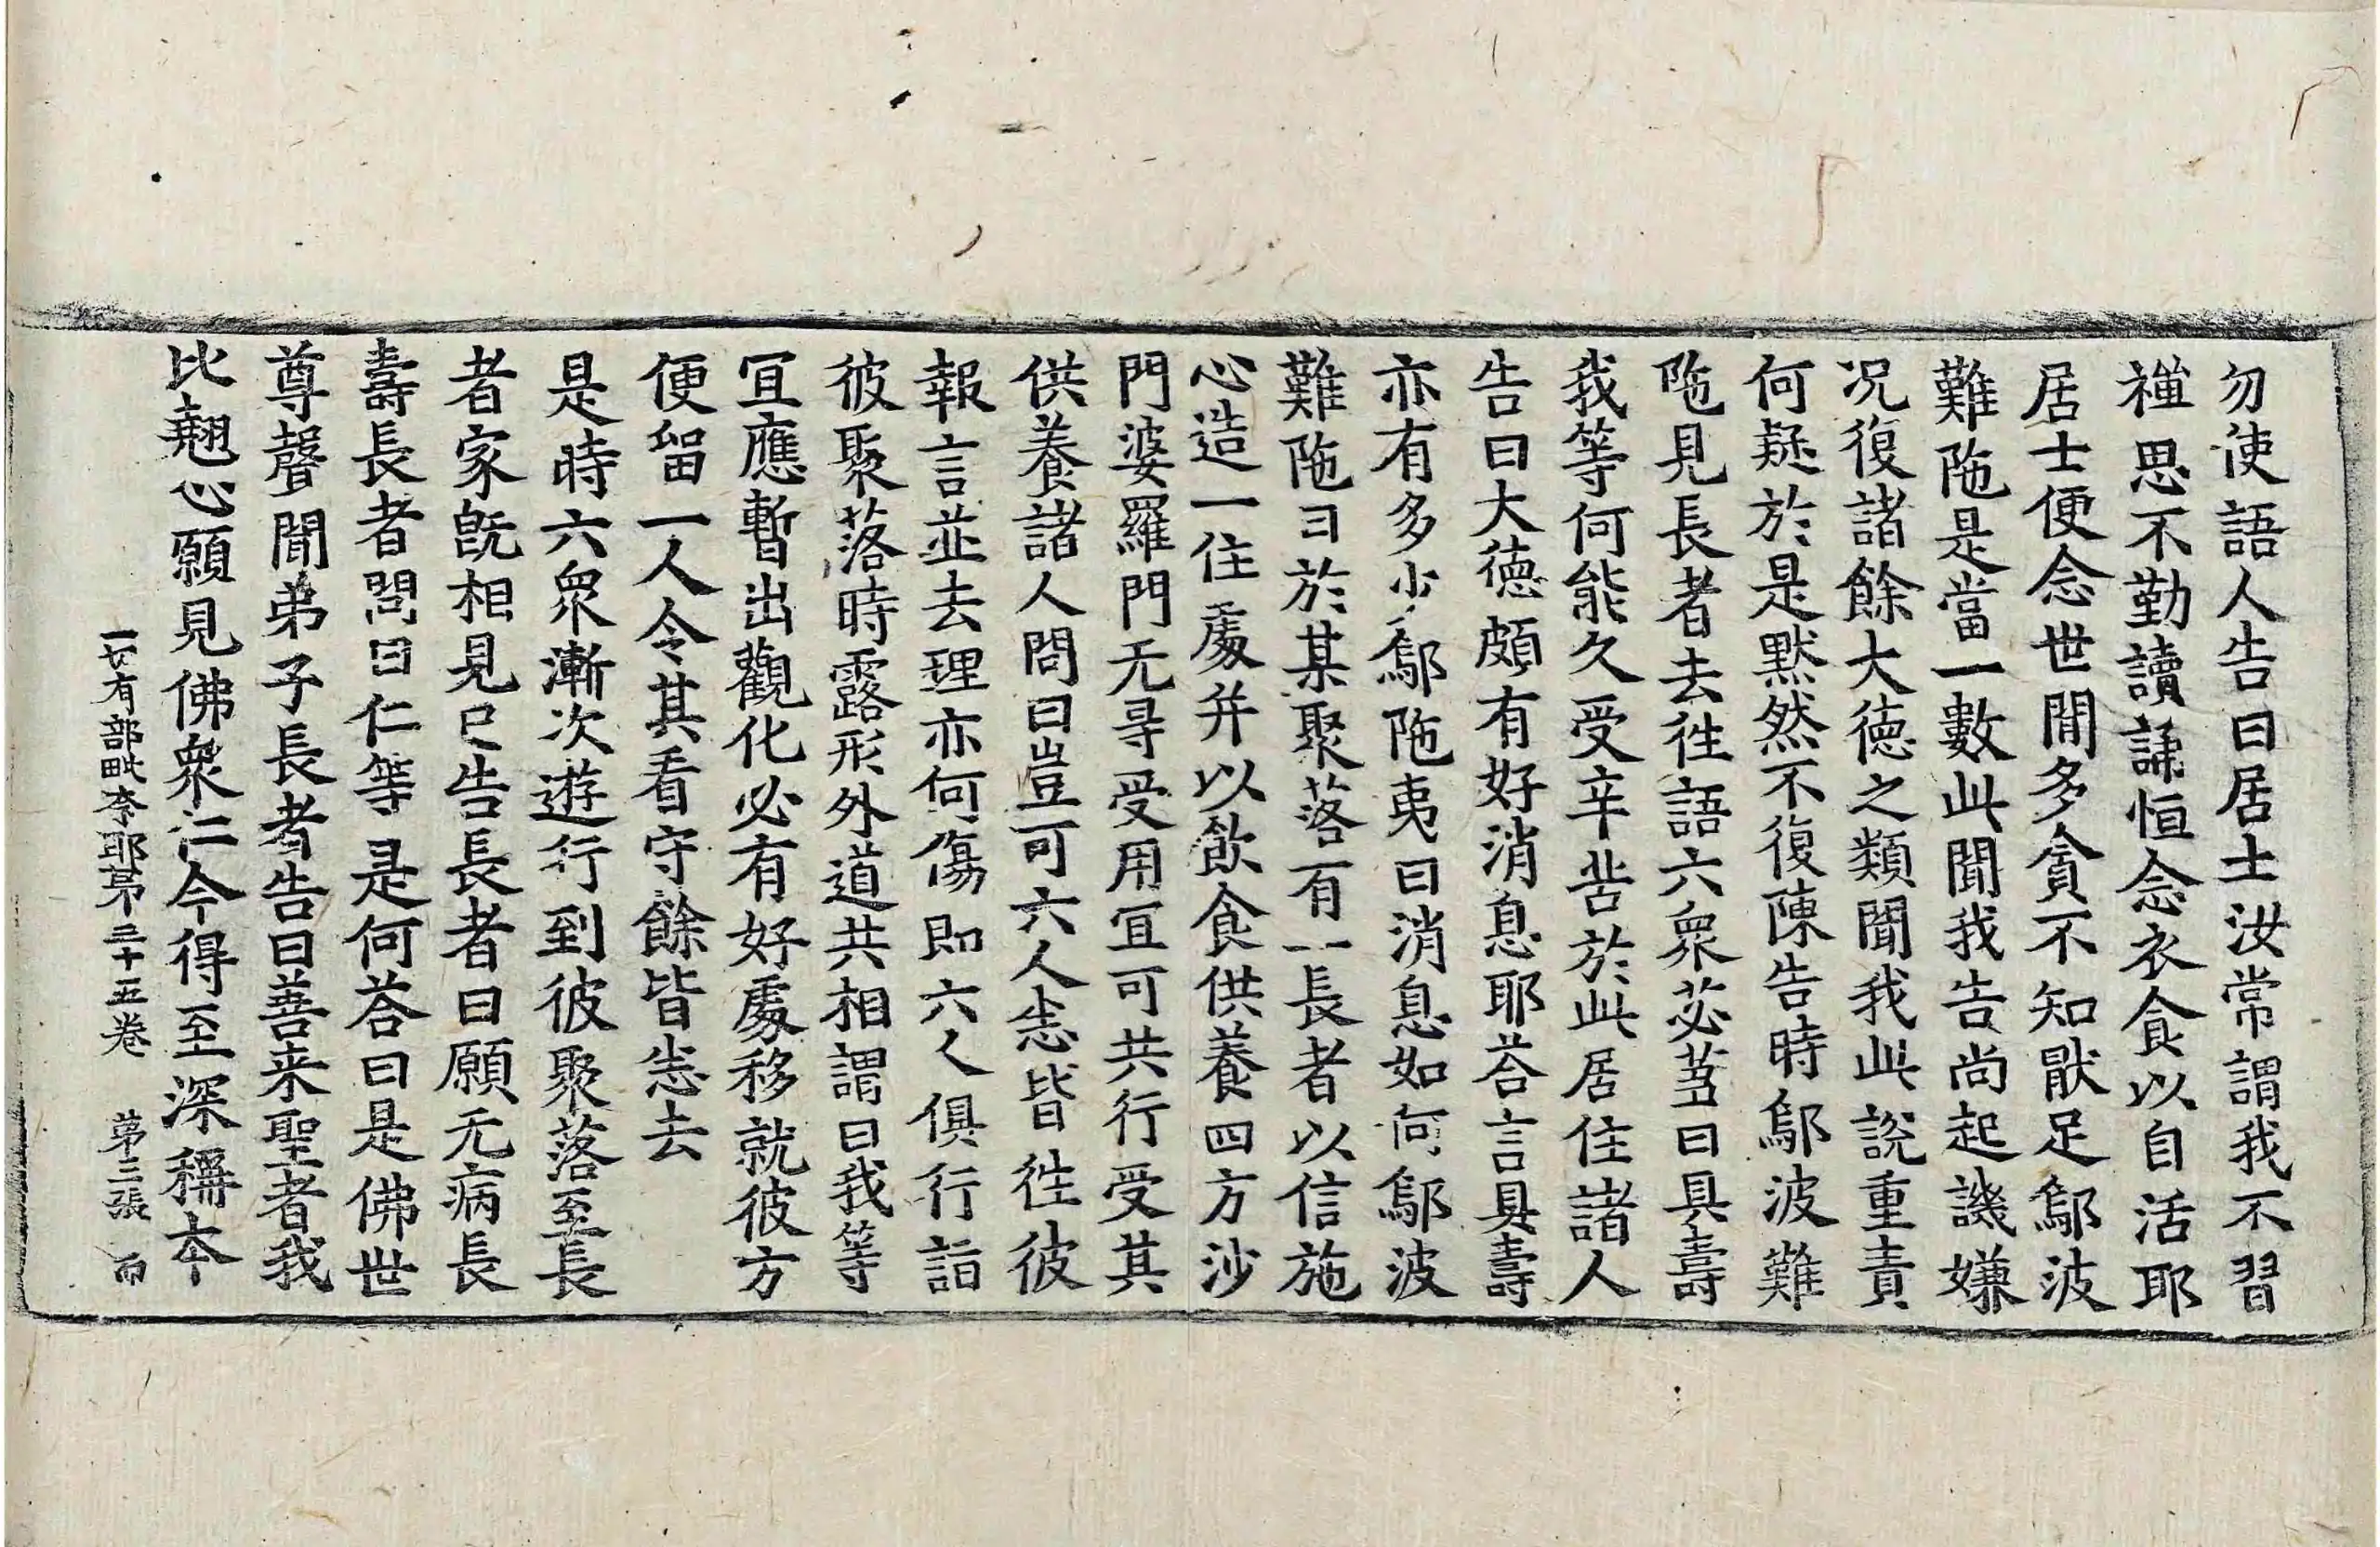 勿使語人告曰居士汝常謂我不習
禪思不勤讀誦恒念衣食以自活耶
居士便念世間多貪不知猒足鄔波
難陁是當一數此聞我告尚起譏嫌
况復諸餘大德之類聞我此說重責
何疑於是默然不復陳告時鄔波難
陁見長者去徃語六衆苾蒭曰具壽
我等何能久受辛苦於此居住諸人
告曰大德頗有好消息耶荅言具壽
亦有多少鄔陁夷曰消息如何鄔波
難陁曰於某聚落有一長者以信施
心造一住處并以飲食供養四方沙
門婆羅門无尋受用冝可共行受其
供養諸人問曰豈可六人悉皆徃彼
報言並去理亦何傷即六人俱行詣
彼聚落時露形外道共相謂曰我等
冝應暫出觀化必有好處移就彼方
便留一人令其看守餘皆悉去
是時六衆漸次遊行到彼聚落至長
者家旣相見已告長者曰願无病長
壽長者問曰仁等是何荅曰是佛世
尊聲聞弟子長者告曰善来聖者我
比翹心願見佛衆仁今得至深稱本
一切有部毗奈耶苐三十五卷　苐三張　而